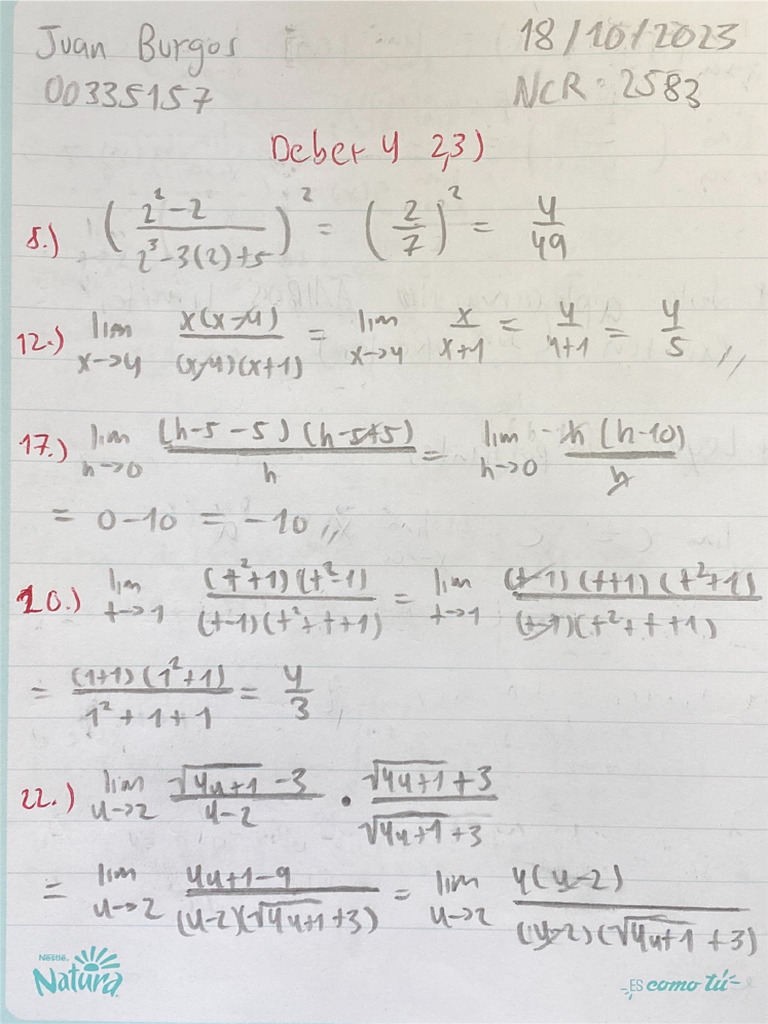 Juan Burgos 18/10/2023
00335157 NCR: 2583
Deber 4 2,3)
8.) (2² - 2 / 2³ - 3(2) + 5)² = (2/7)² = 4/49
12.) lim x→4 x(x-4) / (x-4)(x+1) = lim x→4 x/x+1 = 4/4+1 = 4/5 //
17.) lim h→0 (h-5-5)(h-5+5) / h = lim h→0 h(h-10) / h
= 0-10 = -10 //
20.) lim t→1 (t²+1)(t²-1) / (t-1)(t²+t+1) = lim t→1 (t-1)(t+1)(t²+1) / (t-1)(t²+t+1)
= (1+1)(1²+1) / 1²+1+1 = 4/3
22.) lim u→2 √4u+1 - 3 / u-2 · √4u+1 + 3 / √4u+1 + 3
= lim u→2 4u+1-9 / (u-2)(√4u+1 + 3) = lim u→2 4(u-2) / (u-2)(√4u+1 + 3)
Nestlé.
Natura
ES como tú